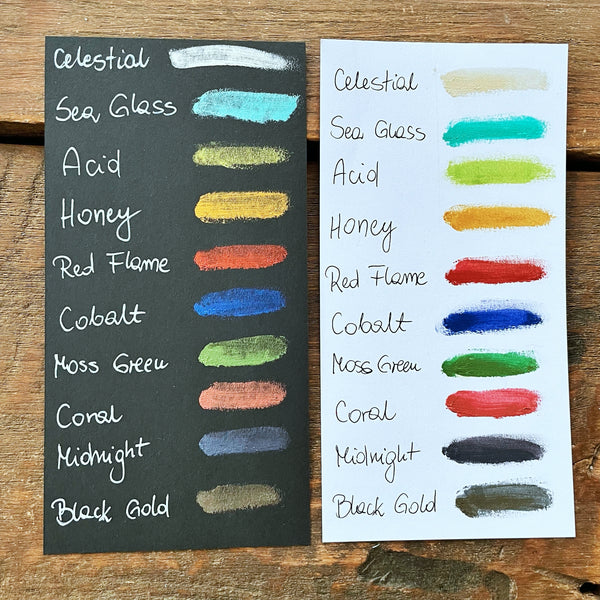 Celestial
Sea Glass
Acid
Honey
Red Flame
Cobalt
Moss Green
Coral
Midnight
Black Gold
Celestial
Sea Glass
Acid
Honey
Red Flame
Cobalt
Moss Green
Coral
Midnight
Black Gold